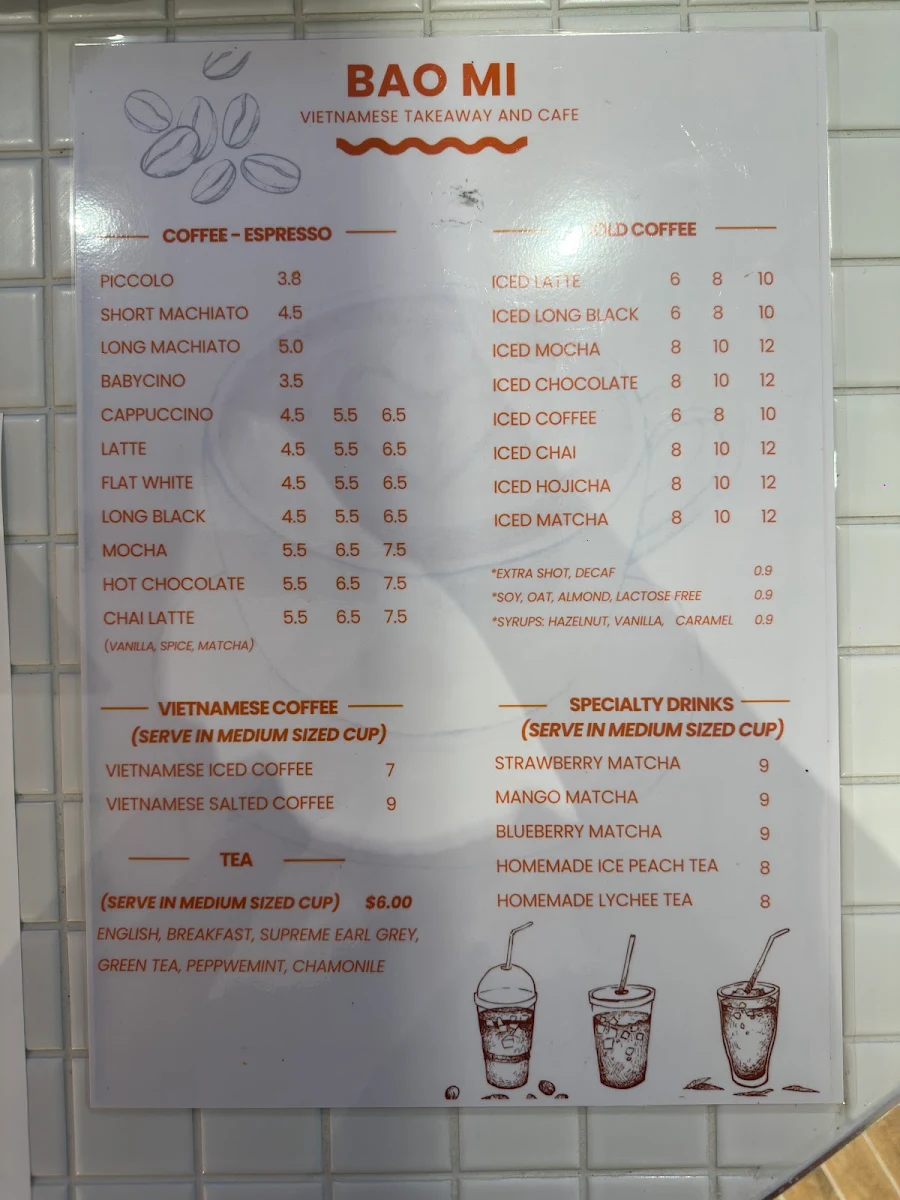 BAO MI
VIETNAMESE TAKEAWAY AND CAFE
COFFEE - ESPRESSO
PICCOLO 3.8
SHORT MACHIATO 4.5
LONG MACHIATO 5.0
BABYCINO 3.5
CAPPUCCINO 4.5 5.5 6.5
LATTE 4.5 5.5 6.5
FLAT WHITE 4.5 5.5 6.5
LONG BLACK 4.5 5.5 6.5
MOCHA 5.5 6.5 7.5
HOT CHOCOLATE 5.5 6.5 7.5
CHAI LATTE 5.5 6.5 7.5
(VANILLA, SPICE, MATCHA)
VIETNAMESE COFFEE
(SERVE IN MEDIUM SIZED CUP)
VIETNAMESE ICED COFFEE 7
VIETNAMESE SALTED COFFEE 9
TEA
(SERVE IN MEDIUM SIZED CUP) $6.00
ENGLISH, BREAKFAST, SUPREME EARL GREY,
GREEN TEA, PEPPWEMINT, CHAMONILE
COLD COFFEE
ICED LATTE 6 8 10
ICED LONG BLACK 6 8 10
ICED MOCHA 8 10 12
ICED CHOCOLATE 8 10 12
ICED COFFEE 6 8 10
ICED CHAI 8 10 12
ICED HOJICHA 8 10 12
ICED MATCHA 8 10 12
*EXTRA SHOT, DECAF 0.9
*SOY, OAT, ALMOND, LACTOSE FREE 0.9
*SYRUPS: HAZELNUT, VANILLA, CARAMEL 0.9
SPECIALTY DRINKS
(SERVE IN MEDIUM SIZED CUP)
STRAWBERRY MATCHA 9
MANGO MATCHA 9
BLUEBERRY MATCHA 9
HOMEMADE ICE PEACH TEA 8
HOMEMADE LYCHEE TEA 8